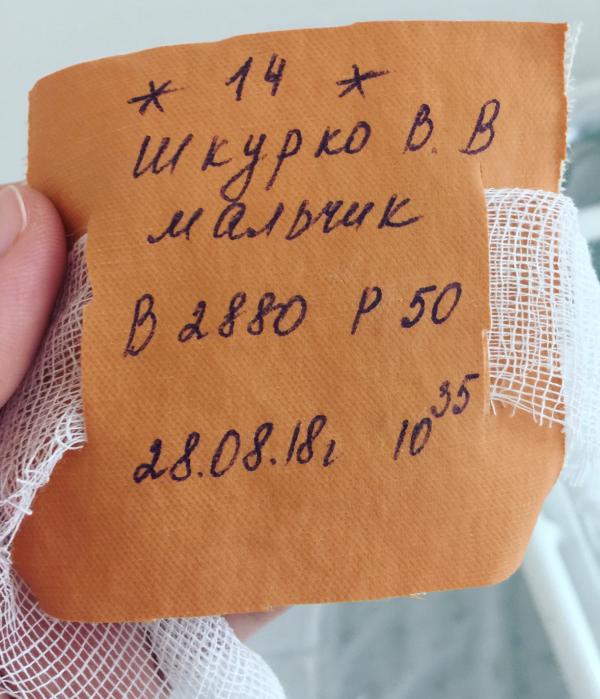 * 14 *
Шкурко В. В
мальчик
В 2880 Р 50
28.08.18г 10³⁵